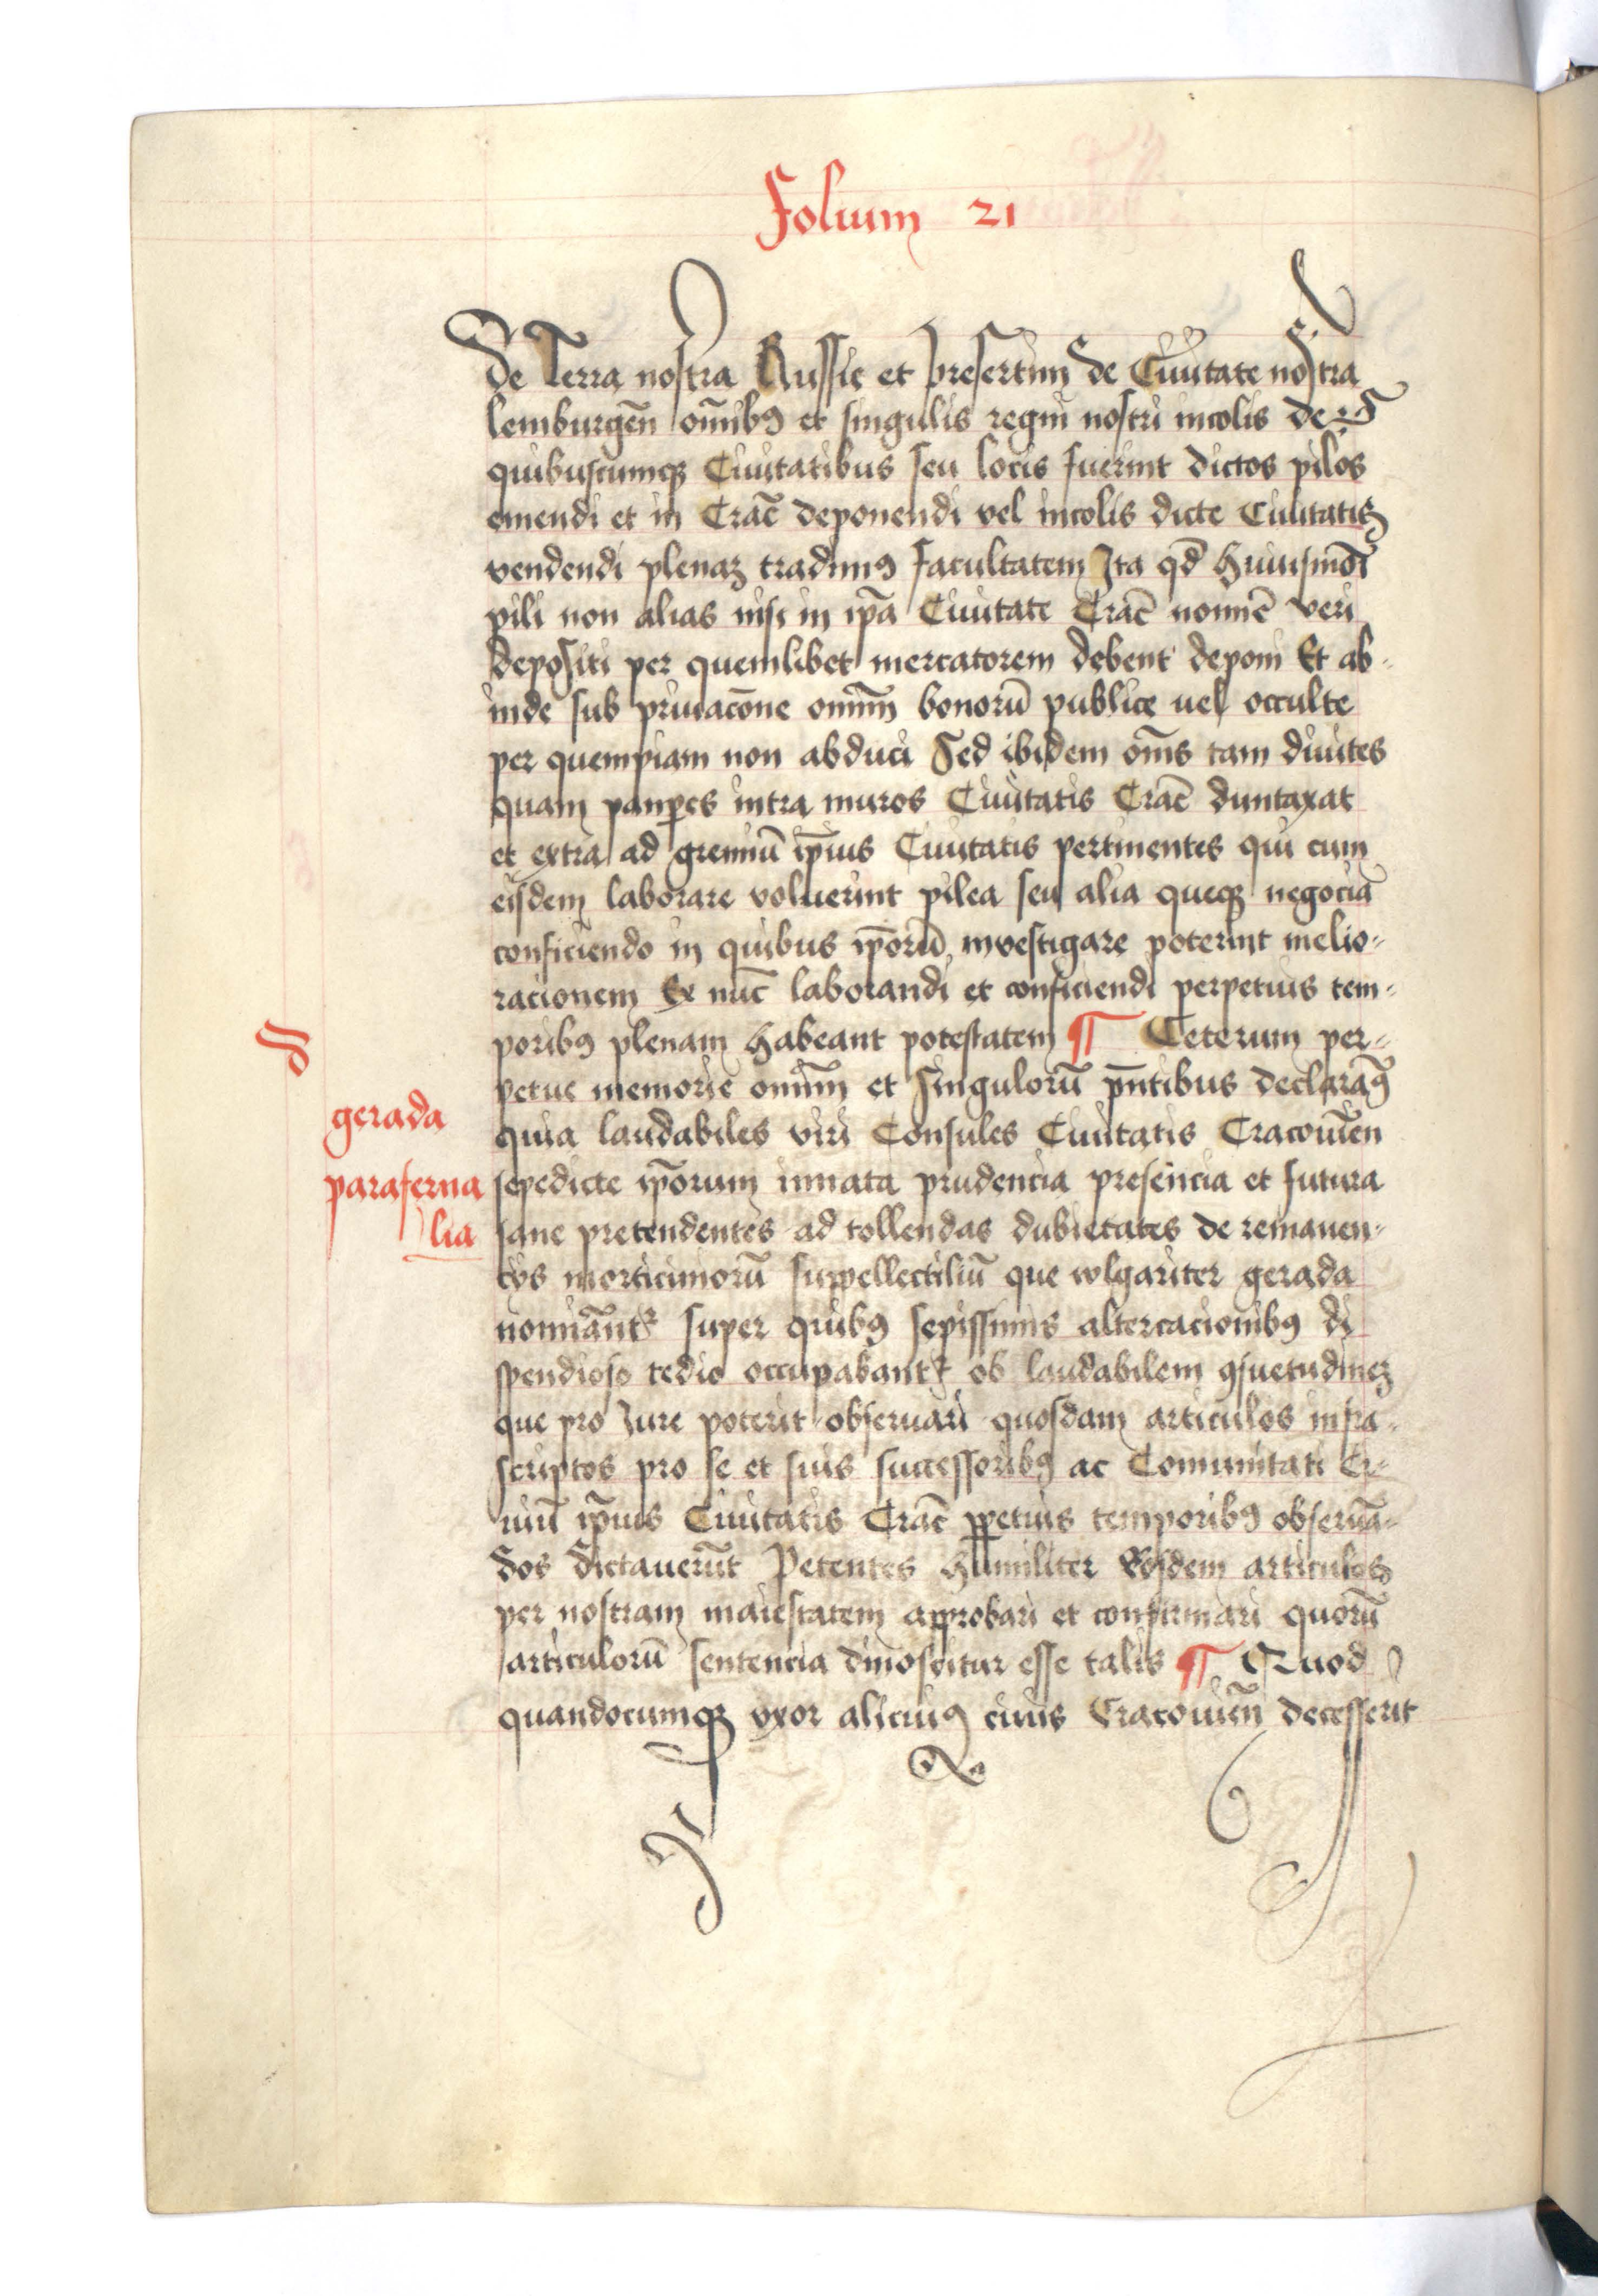 Folium 21
De Terra nostra Russie et presertim de Ciuitate nostra
lemburgeñ om̄ibꝯ et singulis regni nostri incolis de
quibuscumqꝫ Ciuitatibus seu locis fuerint dictos pilos
emendi et in Crac̄ deponendi vel incolis dicte Ciuitatis
vendendi plenaꝫ tradimꝯ facultatem Ita qd̄ huiusmōi
pili non alias nisi in ip̄a Ciuitate Crac̄ nomīe veri
depositi per quemlibet mercatorem debent deponi Et ab-
inde sub priuac̄one omniū bonorū publice uel occulte
per quempiam non abduci Sed ibidem om̄s tam diuites
quam paup̱es intra muros Ciuitatis Crac̄ duntaxat
et extra ad gremiū ip̄ius Ciuitatis pertinentes qui cum
eisdem laborare voluerint pilea seu alia queqꝫ negocia
conficiendo in quibus ip̄orū inuestigare poterint melio-
racionem Ex nūc laborandi et conficiendi perpetuis tem-
poribꝯ plenam habeant potestatem ¶ Ceterum per-
petue memorie omniū et Singulorū pn̄tibus declaramꝯ
gerada
quia laudabiles viri Consules Ciuitatis Cracouieñ
paraferna
sepedicte ip̄orum innata prudencia presencia et futura
lia
sane pretendentes ad tollendas dubietates de remanen-
cijs morticinorū suppellectiliū que wlgariter gerada
nominātᷣ super quibꝯ sepissimis altercacionibꝯ di
spendioso tedio occupabantᷣ ob laudabilem ꝯsuetudineꝫ
que pro Jure poterit obseruari quosdam articulos infra-
scriptos pro se et suis successoribꝯ ac Comunitati Ci-
uiū ip̄ius Ciuitatis Crac̄ ꝑpetuis temporibꝯ obseruā-
dos dictauerūt Petentes humiliter Eosdem articulos
per nostram maiestatem approbari et confirmari quorū
articulorū sentencia dinoscitur esse talis ¶ Quod
quandocumqꝫ vxor alicuiꝯ ciuis Cracouieñ decesserit